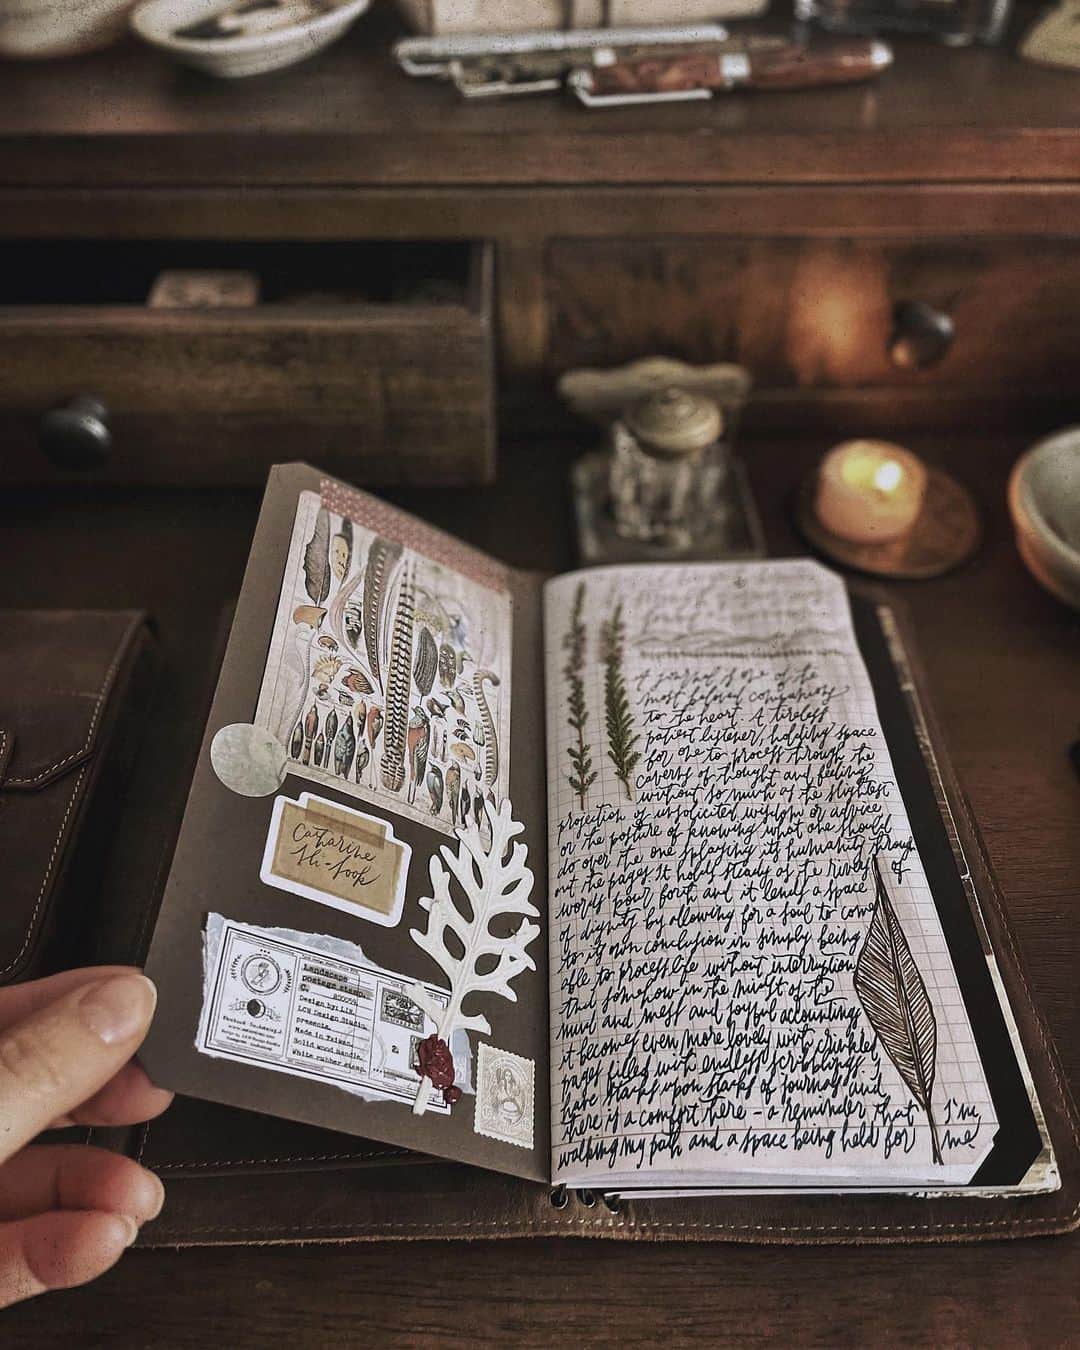 Catharine
Landscape
postage stamp.
Design by: LIN.
LCN Design Studio.
presents.
Made in Taiwan.
Solid wood handle.
White rubber stamp.
a journal is one of the
most beloved companions
to the heart. A tireless
patient listener, holding space
for one to process through the
caverns of thought and feeling
without so much as the slightest
projection of unsolicited wisdom or advice
or the posture of knowing what one should
do over the one splaying its humanity through
out the pages. It holds steady as the rivers of
words pour forth and it lends a space
of dignity by allowing for a soul to come
to its own conclusion in simply being
able to process life without interruption
that somehow in the midst of the
mud and mess and joyful accounting
it becomes even more lovely with crinkled
pages filled with endless scribblings. I
have stacks upon stacks of journals and
there is a comfort there - a reminder that I'm
walking my path and a space being held for me.